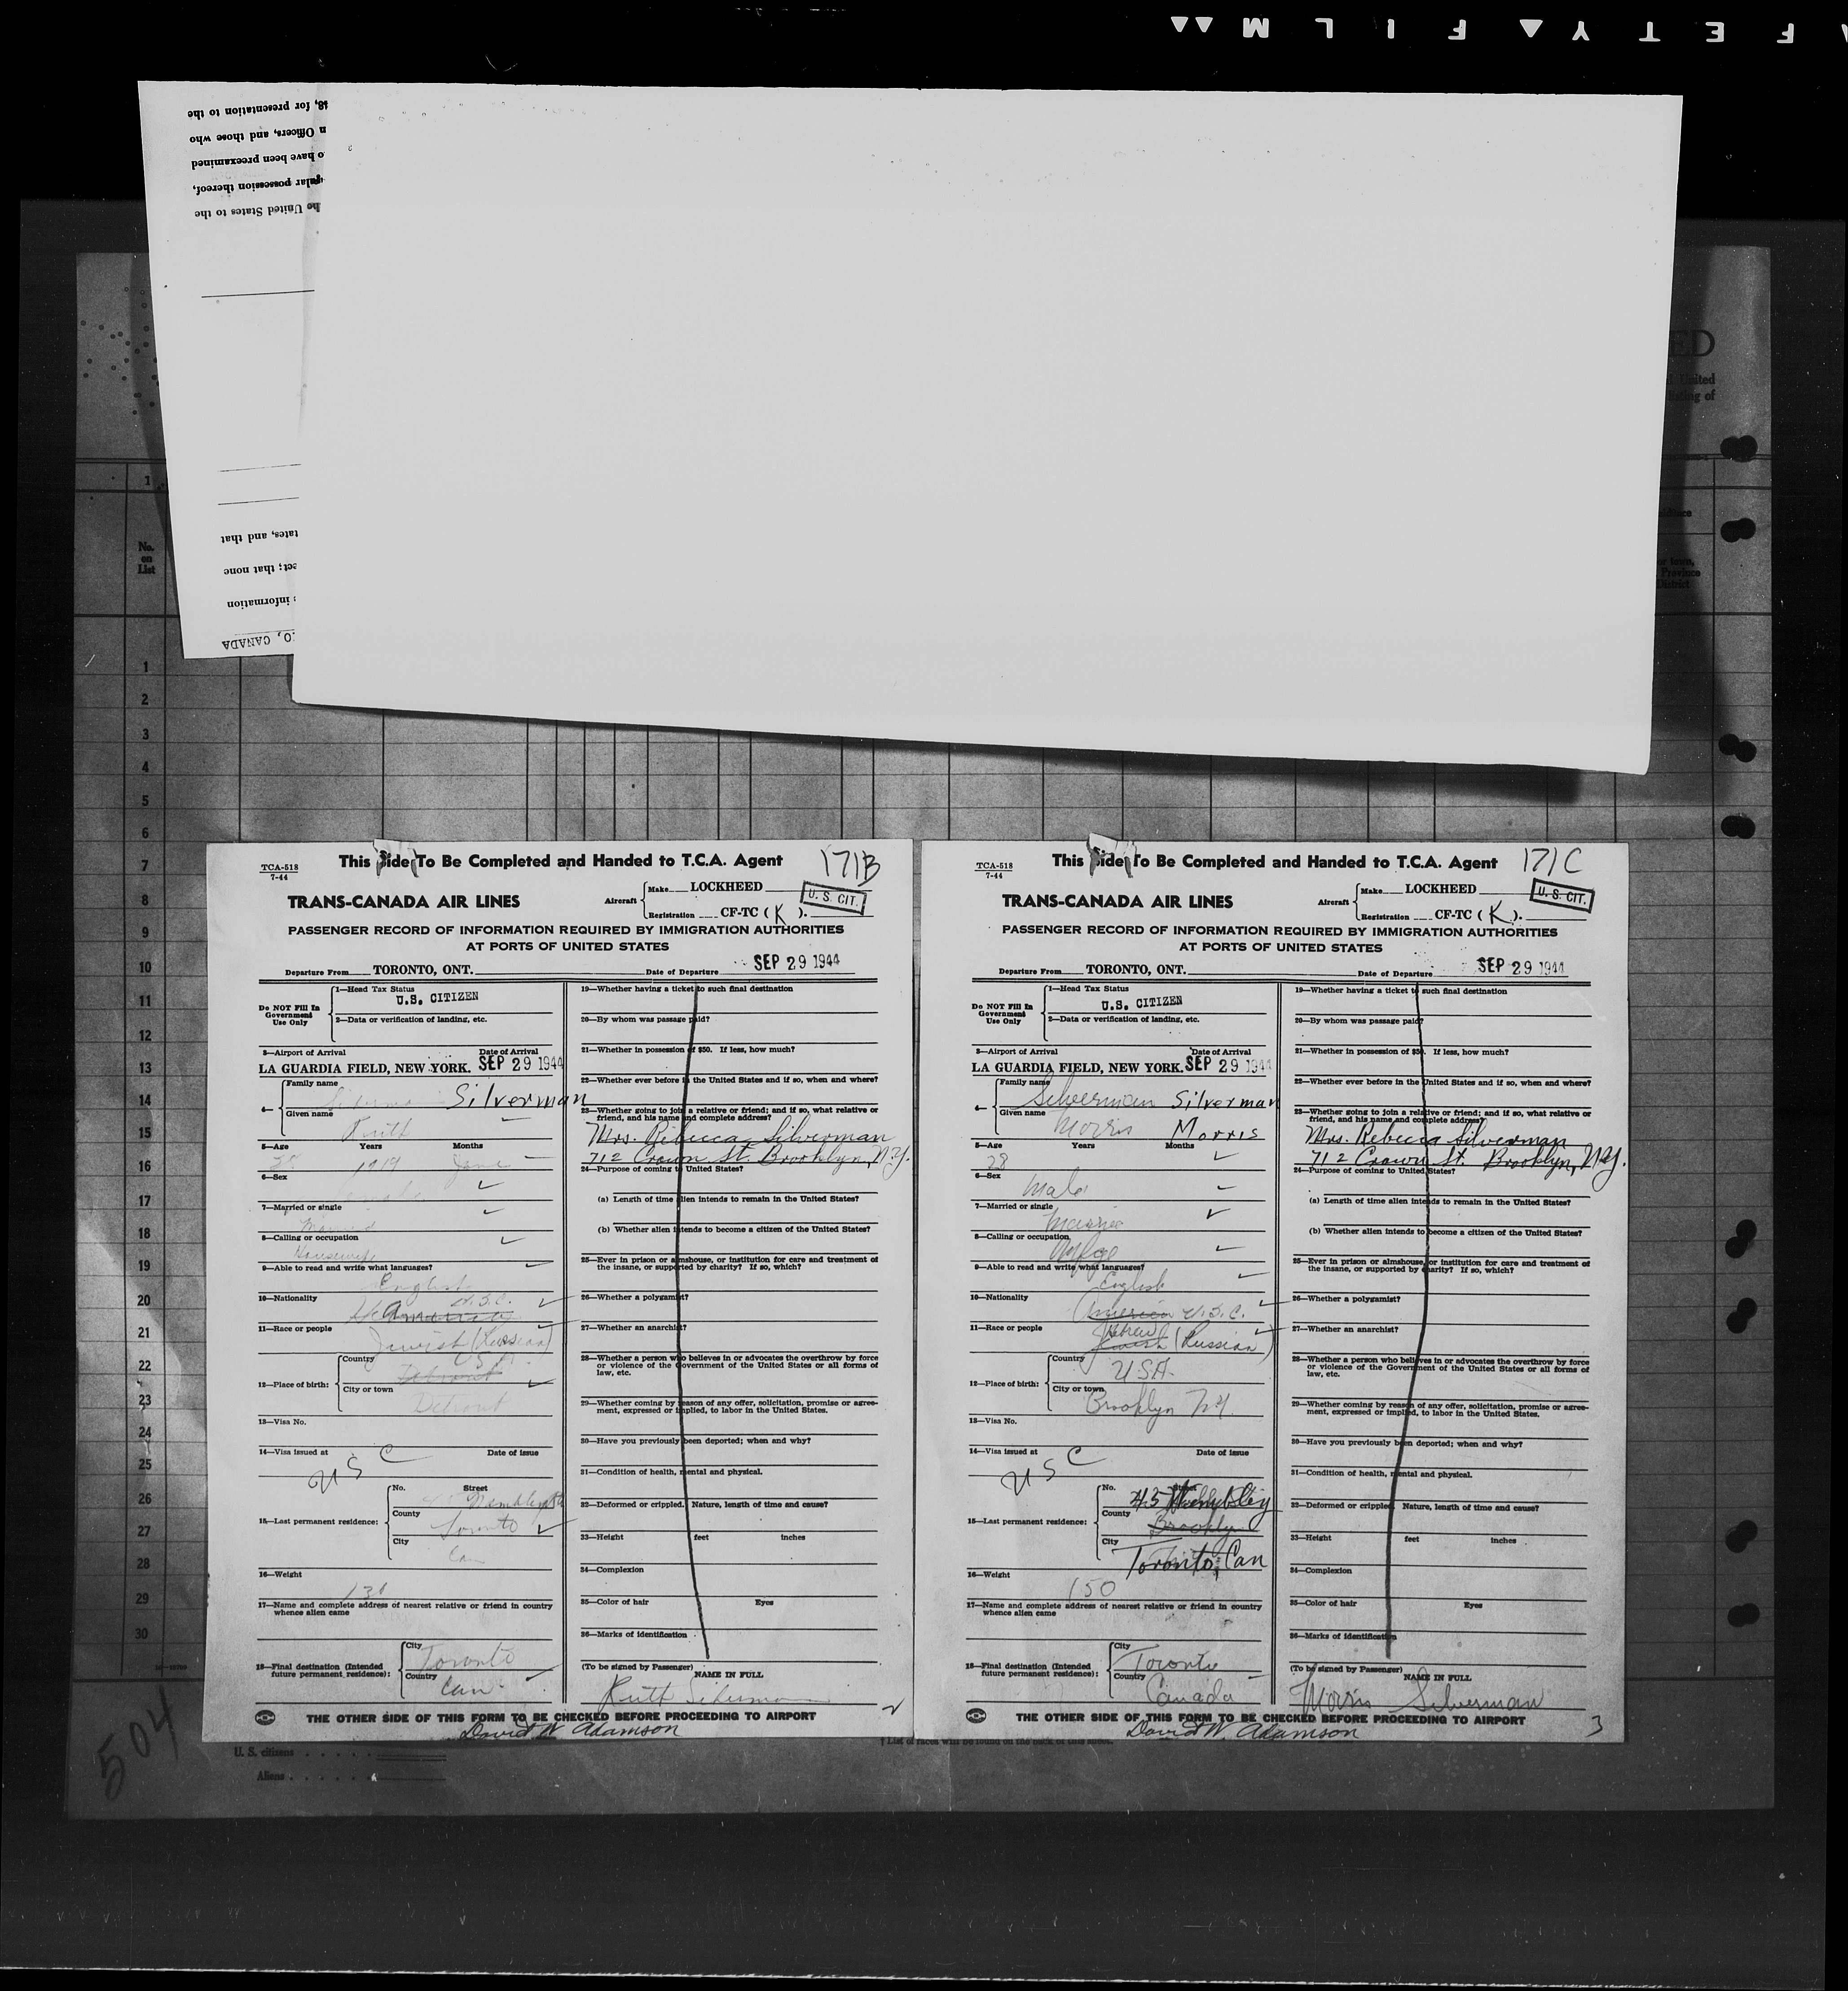 SAFETY FILM
48, for presentation to the
n Officers, and those who
o have been preexamined
gular possession thereof,
he United States to the
tates, and that
ect; that none
information
O, CANADA
ED
United
listing of
1
No.
on
List
or town,
Province
District
1
2
3
4
5
6
7
8
9
10
11
12
13
14
15
16
17
18
19
20
21
22
23
24
25
26
27
28
29
30
TCA-518
7-44
This Side To Be Completed and Handed to T.C.A. Agent
171B
TRANS-CANADA AIR LINES
Aircraft
Make LOCKHEED
Registration CF-TC (K).
U. S. CIT.
PASSENGER RECORD OF INFORMATION REQUIRED BY IMMIGRATION AUTHORITIES
AT PORTS OF UNITED STATES
Departure From TORONTO, ONT. Date of Departure SEP 29 1944
Do NOT Fill In
Government
Use Only
1—Head Tax Status
U.S. CITIZEN
2—Data or verification of landing, etc.
3—Airport of Arrival Date of Arrival
LA GUARDIA FIELD, NEW YORK. SEP 29 1944
4—
Family name
Silverman
Given name
Ruth
5—Age Years Months
1919 June
6—Sex
female
7—Married or single
Married
8—Calling or occupation
Housewife
9—Able to read and write what languages?
English
10—Nationality
U.S.C.
American
11—Race or people
Jewish (Russian)
12—Place of birth:
Country
U.S.A.
Detroit
City or town
Detroit
13—Visa No.
14—Visa issued at Date of issue
USC
15—Last permanent residence:
No. Street
County
Toronto
City
Can
16—Weight
130
17—Name and complete address of nearest relative or friend in country
whence alien came
18—Final destination (Intended
future permanent residence):
City
Toronto
Country
Can.
19—Whether having a ticket to such final destination
20—By whom was passage paid?
21—Whether in possession of $50. If less, how much?
22—Whether ever before in the United States and if so, when and where?
23—Whether going to join a relative or friend; and if so, what relative or
friend, and his name and complete address?
Mrs. Rebecca Silverman
712 Crown St. Brooklyn, N.Y.
24—Purpose of coming to United States?
(a) Length of time alien intends to remain in the United States?
(b) Whether alien intends to become a citizen of the United States?
25—Ever in prison or almshouse, or institution for care and treatment of
the insane, or supported by charity? If so, which?
26—Whether a polygamist?
27—Whether an anarchist?
28—Whether a person who believes in or advocates the overthrow by force
or violence of the Government of the United States or all forms of
law, etc.
29—Whether coming by reason of any offer, solicitation, promise or agree-
ment, expressed or implied, to labor in the United States.
30—Have you previously been deported; when and why?
31—Condition of health, mental and physical.
32—Deformed or crippled. Nature, length of time and cause?
33—Height feet inches
34—Complexion
35—Color of hair Eyes
36—Marks of identification
(To be signed by Passenger) NAME IN FULL
Ruth Silverman
2
THE OTHER SIDE OF THIS FORM TO BE CHECKED BEFORE PROCEEDING TO AIRPORT
David W. Adamson
TCA-518
7-44
This Side To Be Completed and Handed to T.C.A. Agent
171C
TRANS-CANADA AIR LINES
Aircraft
Make LOCKHEED
Registration CF-TC (K).
U. S. CIT.
PASSENGER RECORD OF INFORMATION REQUIRED BY IMMIGRATION AUTHORITIES
AT PORTS OF UNITED STATES
Departure From TORONTO, ONT. Date of Departure SEP 29 1944
Do NOT Fill In
Government
Use Only
1—Head Tax Status
U.S. CITIZEN
2—Data or verification of landing, etc.
3—Airport of Arrival Date of Arrival
LA GUARDIA FIELD, NEW YORK. SEP 29 1944
4—
Family name
Silverman Silverman
Given name
Morris Morris
5—Age Years Months
28
6—Sex
Male
7—Married or single
Married
8—Calling or occupation
Mfge
9—Able to read and write what languages?
English
10—Nationality
American U.S.C.
11—Race or people
Hebrew
Jewish (Russian)
12—Place of birth:
Country
USA.
City or town
Brooklyn NY
13—Visa No.
14—Visa issued at Date of issue
USC
15—Last permanent residence:
No. Street
County
Brooklyn
City
Toronto, Can
16—Weight
150
17—Name and complete address of nearest relative or friend in country
whence alien came
18—Final destination (Intended
future permanent residence):
City
Toronto
Country
Canada
19—Whether having a ticket to such final destination
20—By whom was passage paid?
21—Whether in possession of $50. If less, how much?
22—Whether ever before in the United States and if so, when and where?
23—Whether going to join a relative or friend; and if so, what relative or
friend, and his name and complete address?
Mrs. Rebecca Silverman
712 Crown St. Brooklyn, N.Y.
24—Purpose of coming to United States?
(a) Length of time alien intends to remain in the United States?
(b) Whether alien intends to become a citizen of the United States?
25—Ever in prison or almshouse, or institution for care and treatment of
the insane, or supported by charity? If so, which?
26—Whether a polygamist?
27—Whether an anarchist?
28—Whether a person who believes in or advocates the overthrow by force
or violence of the Government of the United States or all forms of
law, etc.
29—Whether coming by reason of any offer, solicitation, promise or agree-
ment, expressed or implied, to labor in the United States.
30—Have you previously been deported; when and why?
31—Condition of health, mental and physical.
32—Deformed or crippled. Nature, length of time and cause?
33—Height feet inches
34—Complexion
35—Color of hair Eyes
36—Marks of identification
(To be signed by Passenger) NAME IN FULL
Morris Silverman
3
THE OTHER SIDE OF THIS FORM TO BE CHECKED BEFORE PROCEEDING TO AIRPORT
David W. Adamson
504
U. S. citizens
Aliens
† List of races will be found on the back of this sheet.